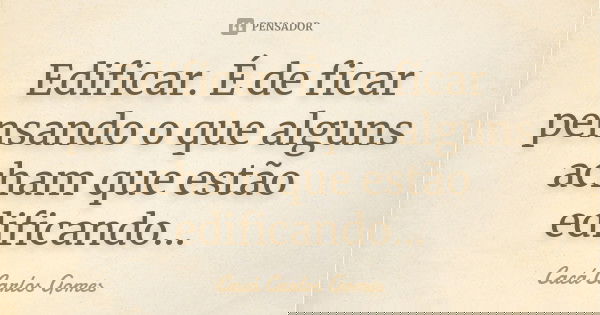 PENSADOR
Edificar. É de ficar
pensando o que alguns
acham que estão
edificando...
Cacá Carlos Gomes